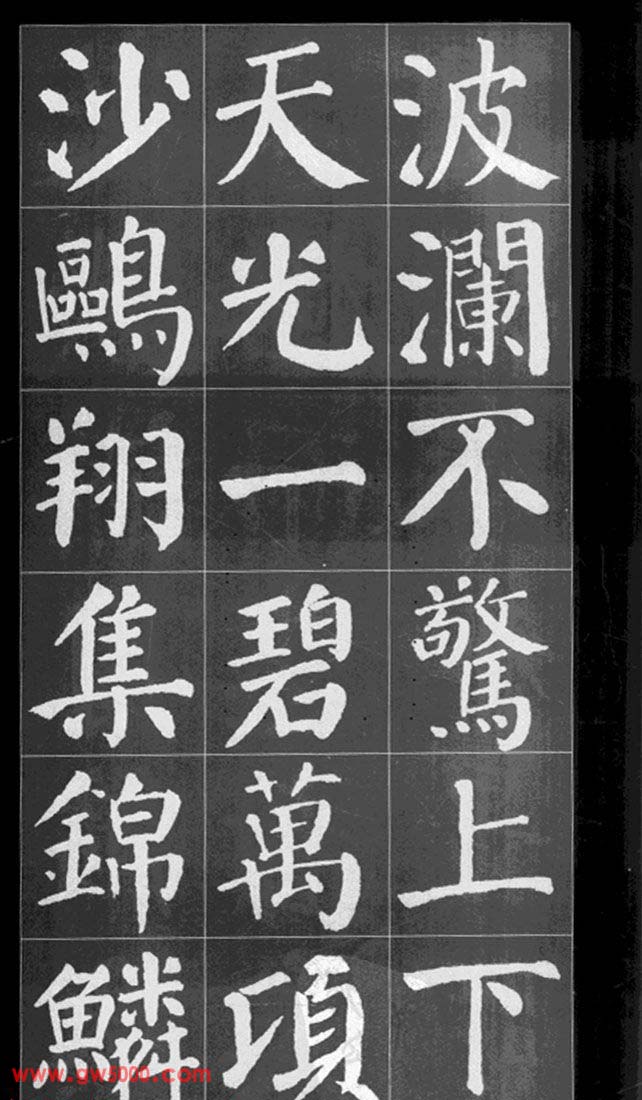 波瀾不驚上下
天光一碧萬頃
沙鷗翔集錦鱗
www.gw5000.com